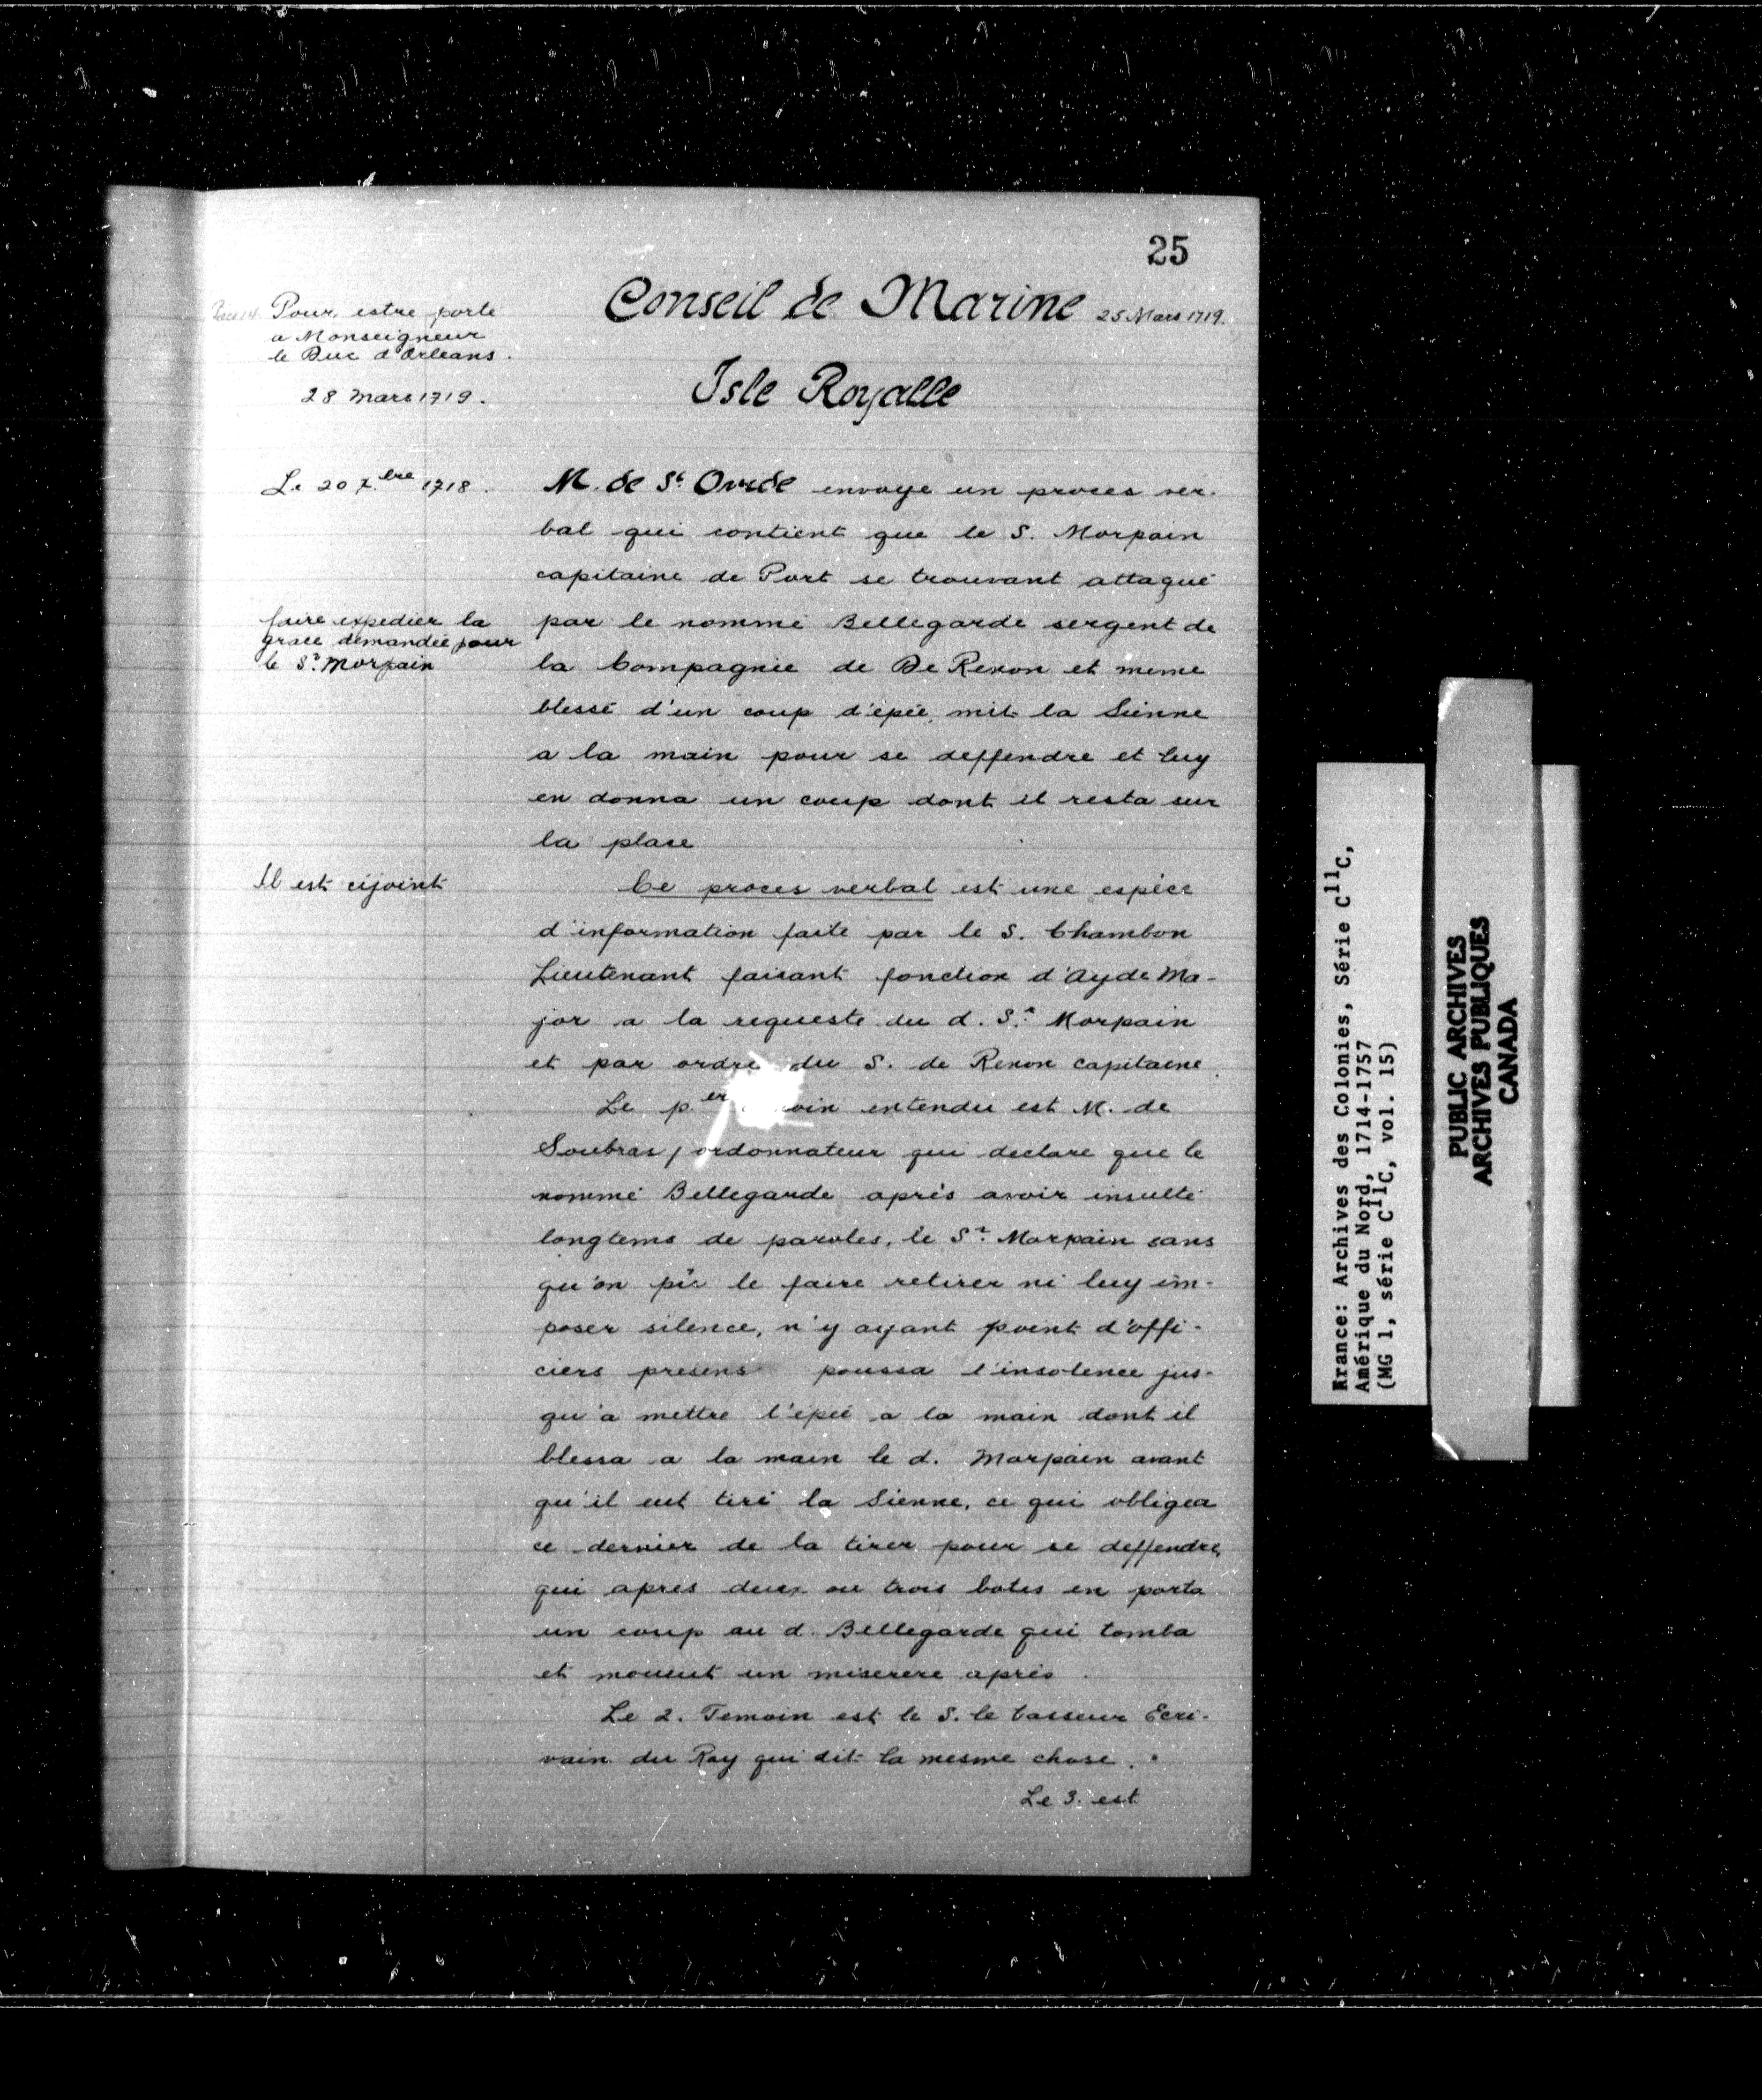 25
Conseil de Marine 25 Mars 1719.
Isle Royalle
Pour estre porte
a Monseigneur
le Duc d'Orleans.
28 Mars 1719.
Le 20 7.bre 1718.
M. de St Ovide envoye un proces ver-
bal qui contient que le S. Morpain
capitaine de Port se trouvant attaqué
faire expedier la
grace demandée pour
le Sr. Morpain
par le nommé Bellegarde sergent de
la Compagnie de De Renon et meme
blessé d'un coup d'épée, mit la Sienne
a la main pour se deffendre et luy
en donna un coup dont il resta sur
la place
Il est cijoint
Ce proces verbal est une espéce
d'information faite par le S. Chambon
Lieutenant faisant fonction d'Ayde Ma-
jor a la requeste du d. Sr. Morpain
et par ordre du S. de Renon capitaine.
Le p.er entendu est M. de
Soubras, ordonnateur qui declare que le
nommé Bellegarde aprés avoir insulté
longtems de paroles, le Sr. Morpain sans
qu'on le faire retirer ni luy im-
poser silence, n'y ayant point d'offi-
ciers presens poussa l'insolence jus-
qu'a mettre l'épée a la main dont il
blessa a la main le d. Morpain avant
qu'il eut tiré la Sienne, ce qui obligea
ce dernier de la tirer pour se deffendre,
qui apres deux ou trois botes en porta
un coup au d. Bellegarde qui tomba
et mourut un miserere aprés.
Le 2. Temoin est le S. le Vasseur Ecri-
vain du Roy qui dit la mesme chose.
Le 3. est
Rrance: Archives des Colonies, Série C11C,
Amérique du Nord, 1714-1757
(MG 1, série C11C, vol. 15)
PUBLIC ARCHIVES
ARCHIVES PUBLIQUES
CANADA